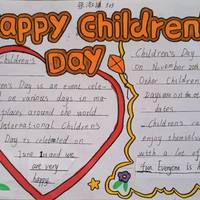 Happy Children
Day
Children's
's Day is an event cele-
on various days in ma-
places around the world
International Children's
Day is celebrated on
June 1st and we
are very
happy.
Children's Day
on November 20th
Other Children
Days are on the ot
dates.
Children ca
enjoy themselv
with a lot of
fun. Everyone is